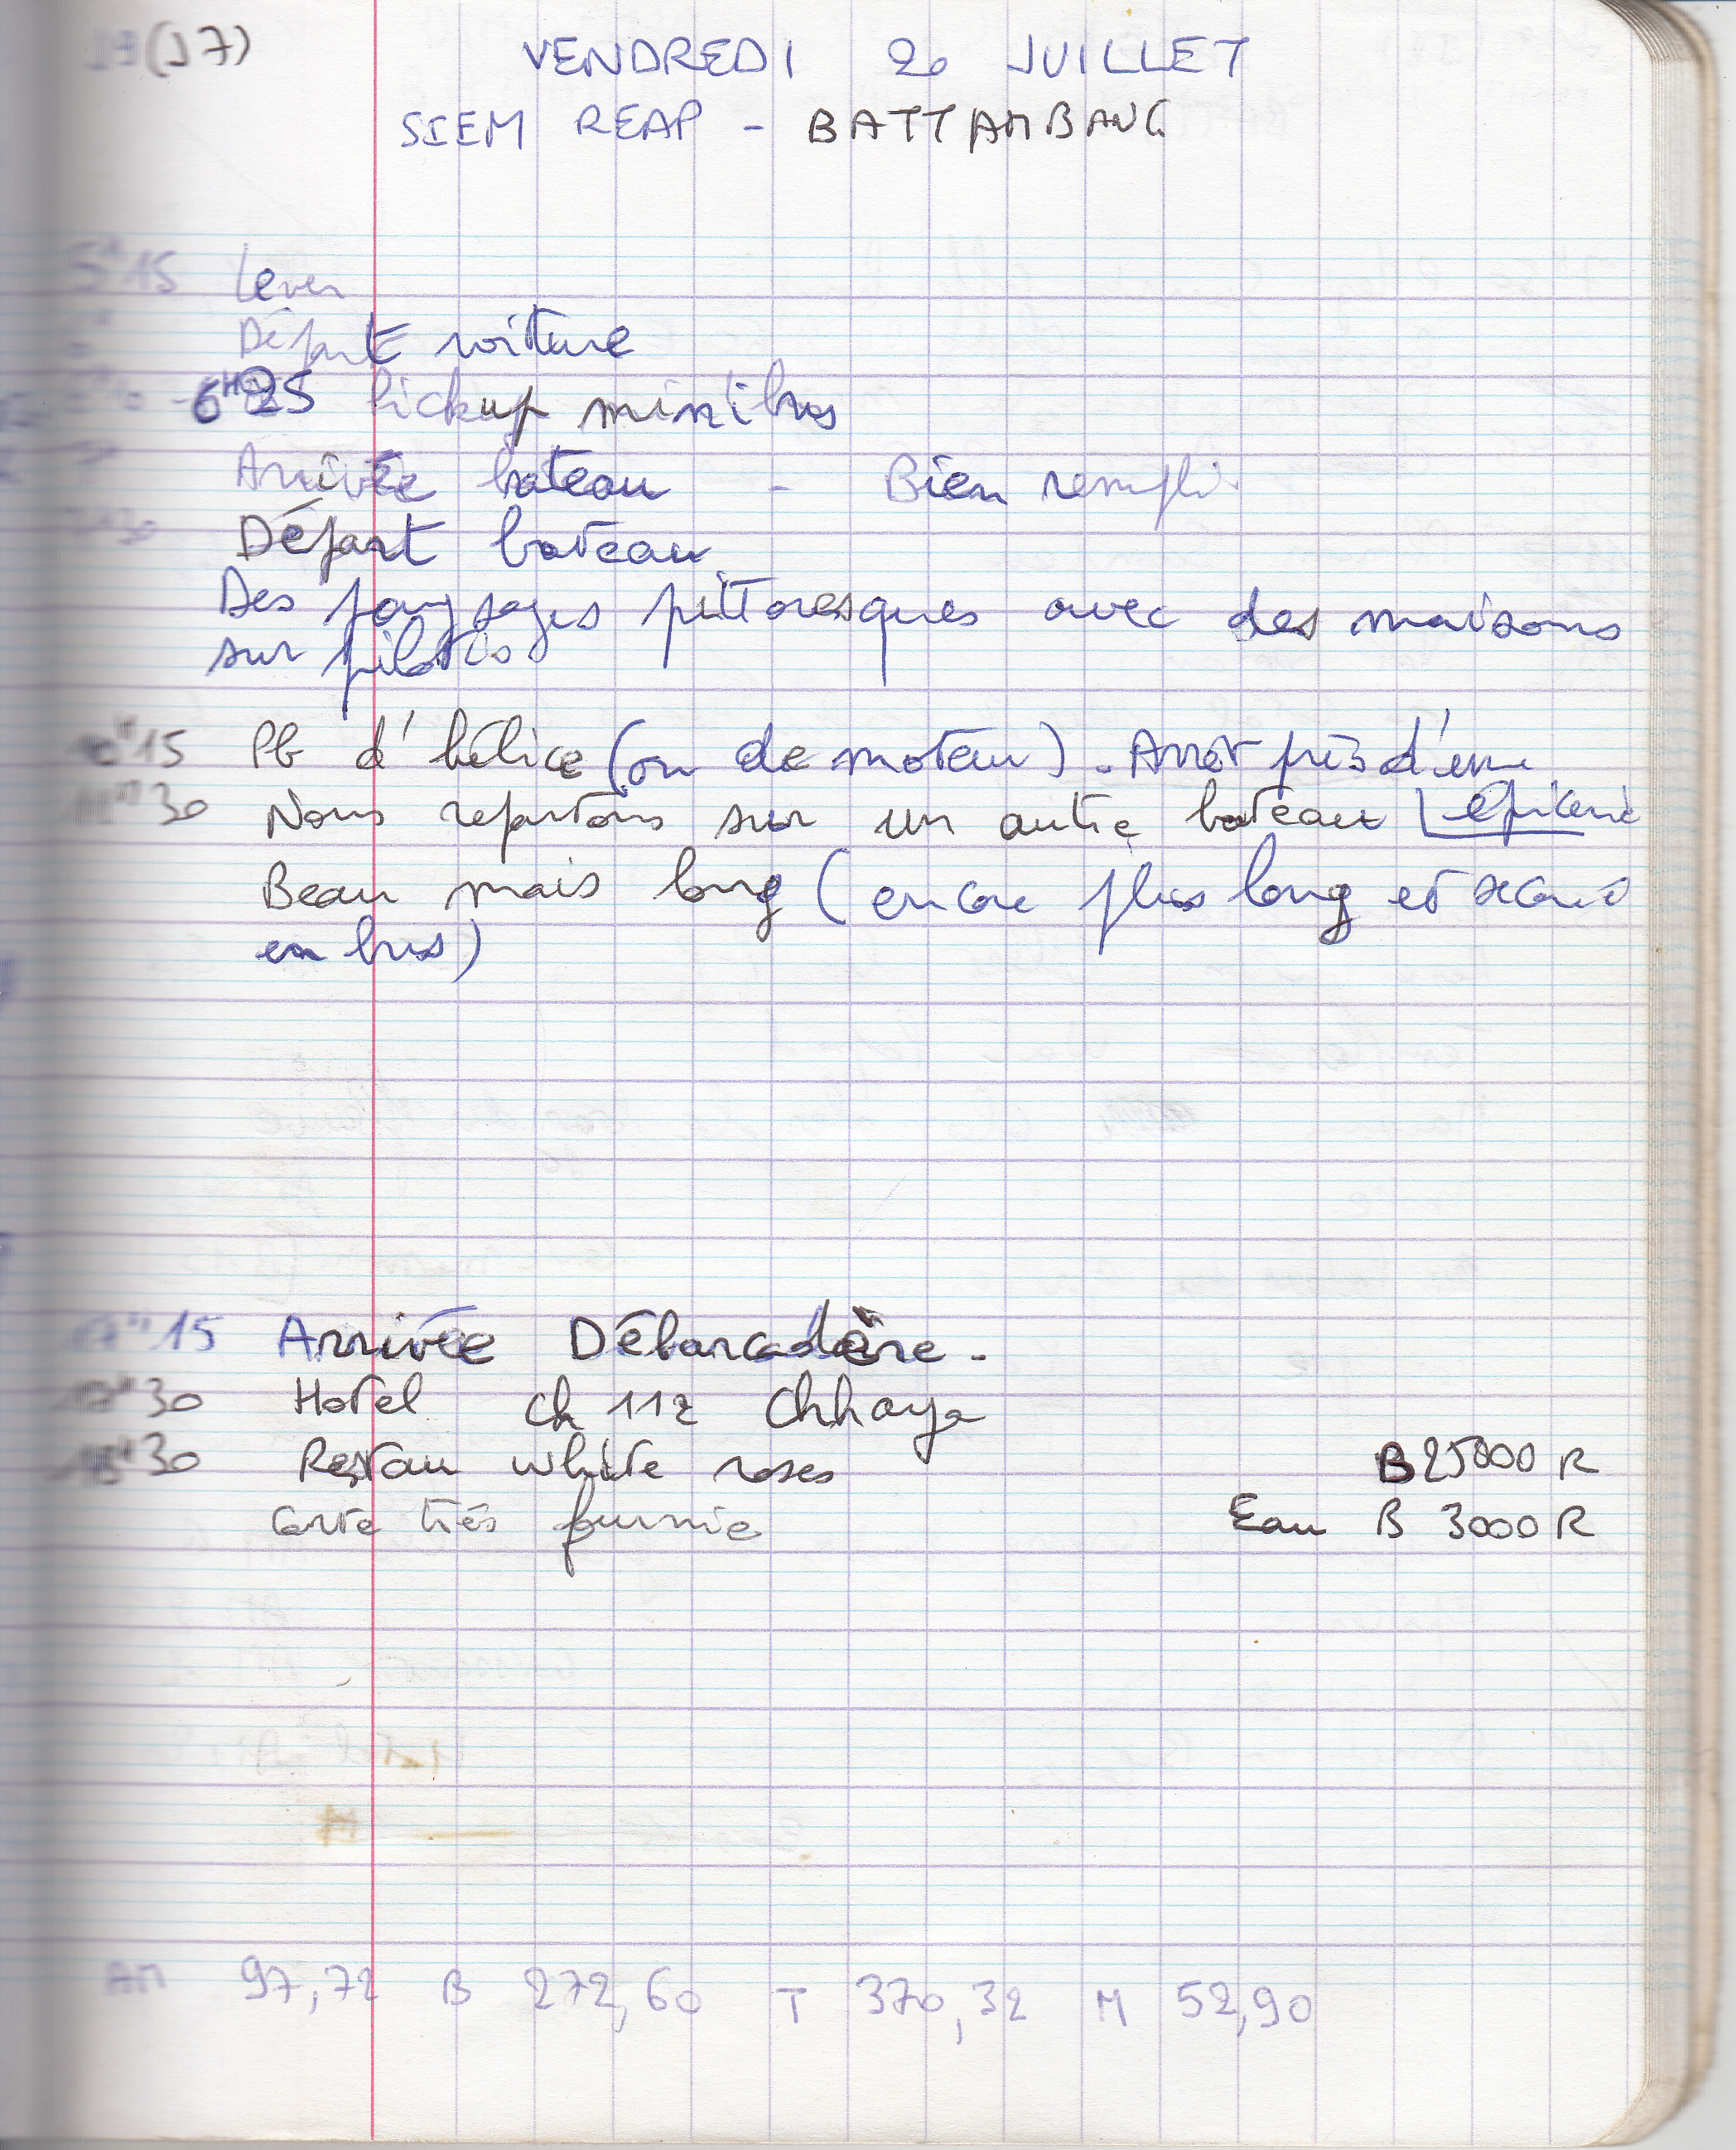 (J7)
VENDREDI 20 JUILLET
SIEM REAP - BATTAMBANG
5H15 Lever
Départ voiture
6H25 Pickup minibus
Arrivée bateau - Bien rempli
30 Départ bateau
Des paysages pittoresques avec des maisons
sur pilotis
10H15 Pb d'hélice (ou de moteur). Arrêt près d'une
épicerie
11H30 Nous repartons sur un autre bateau
Beau mais long (encore plus long et secoué
en bus)
17H15 Arrivée Débarcadère.
17H30 Hotel Ch 112 Chhaya
18H30 Restau white roses B 25000 R
Carte très fournie Eau B 3000 R
AM 97,72 B 272,60 T 370,32 M 52,90